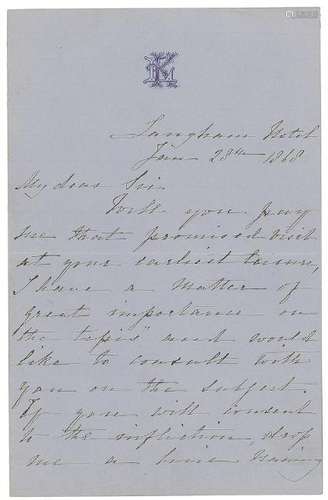 K
Langham Hotel
Jan 28th 1868
My dear Sir.
Will you pay
me that promised visit
at your earliest leisure,
I have a matter of
great importance on
the "tapis" and would
like to consult with
you on the subject.
If you will consent
to the infliction, drop
me a line naming